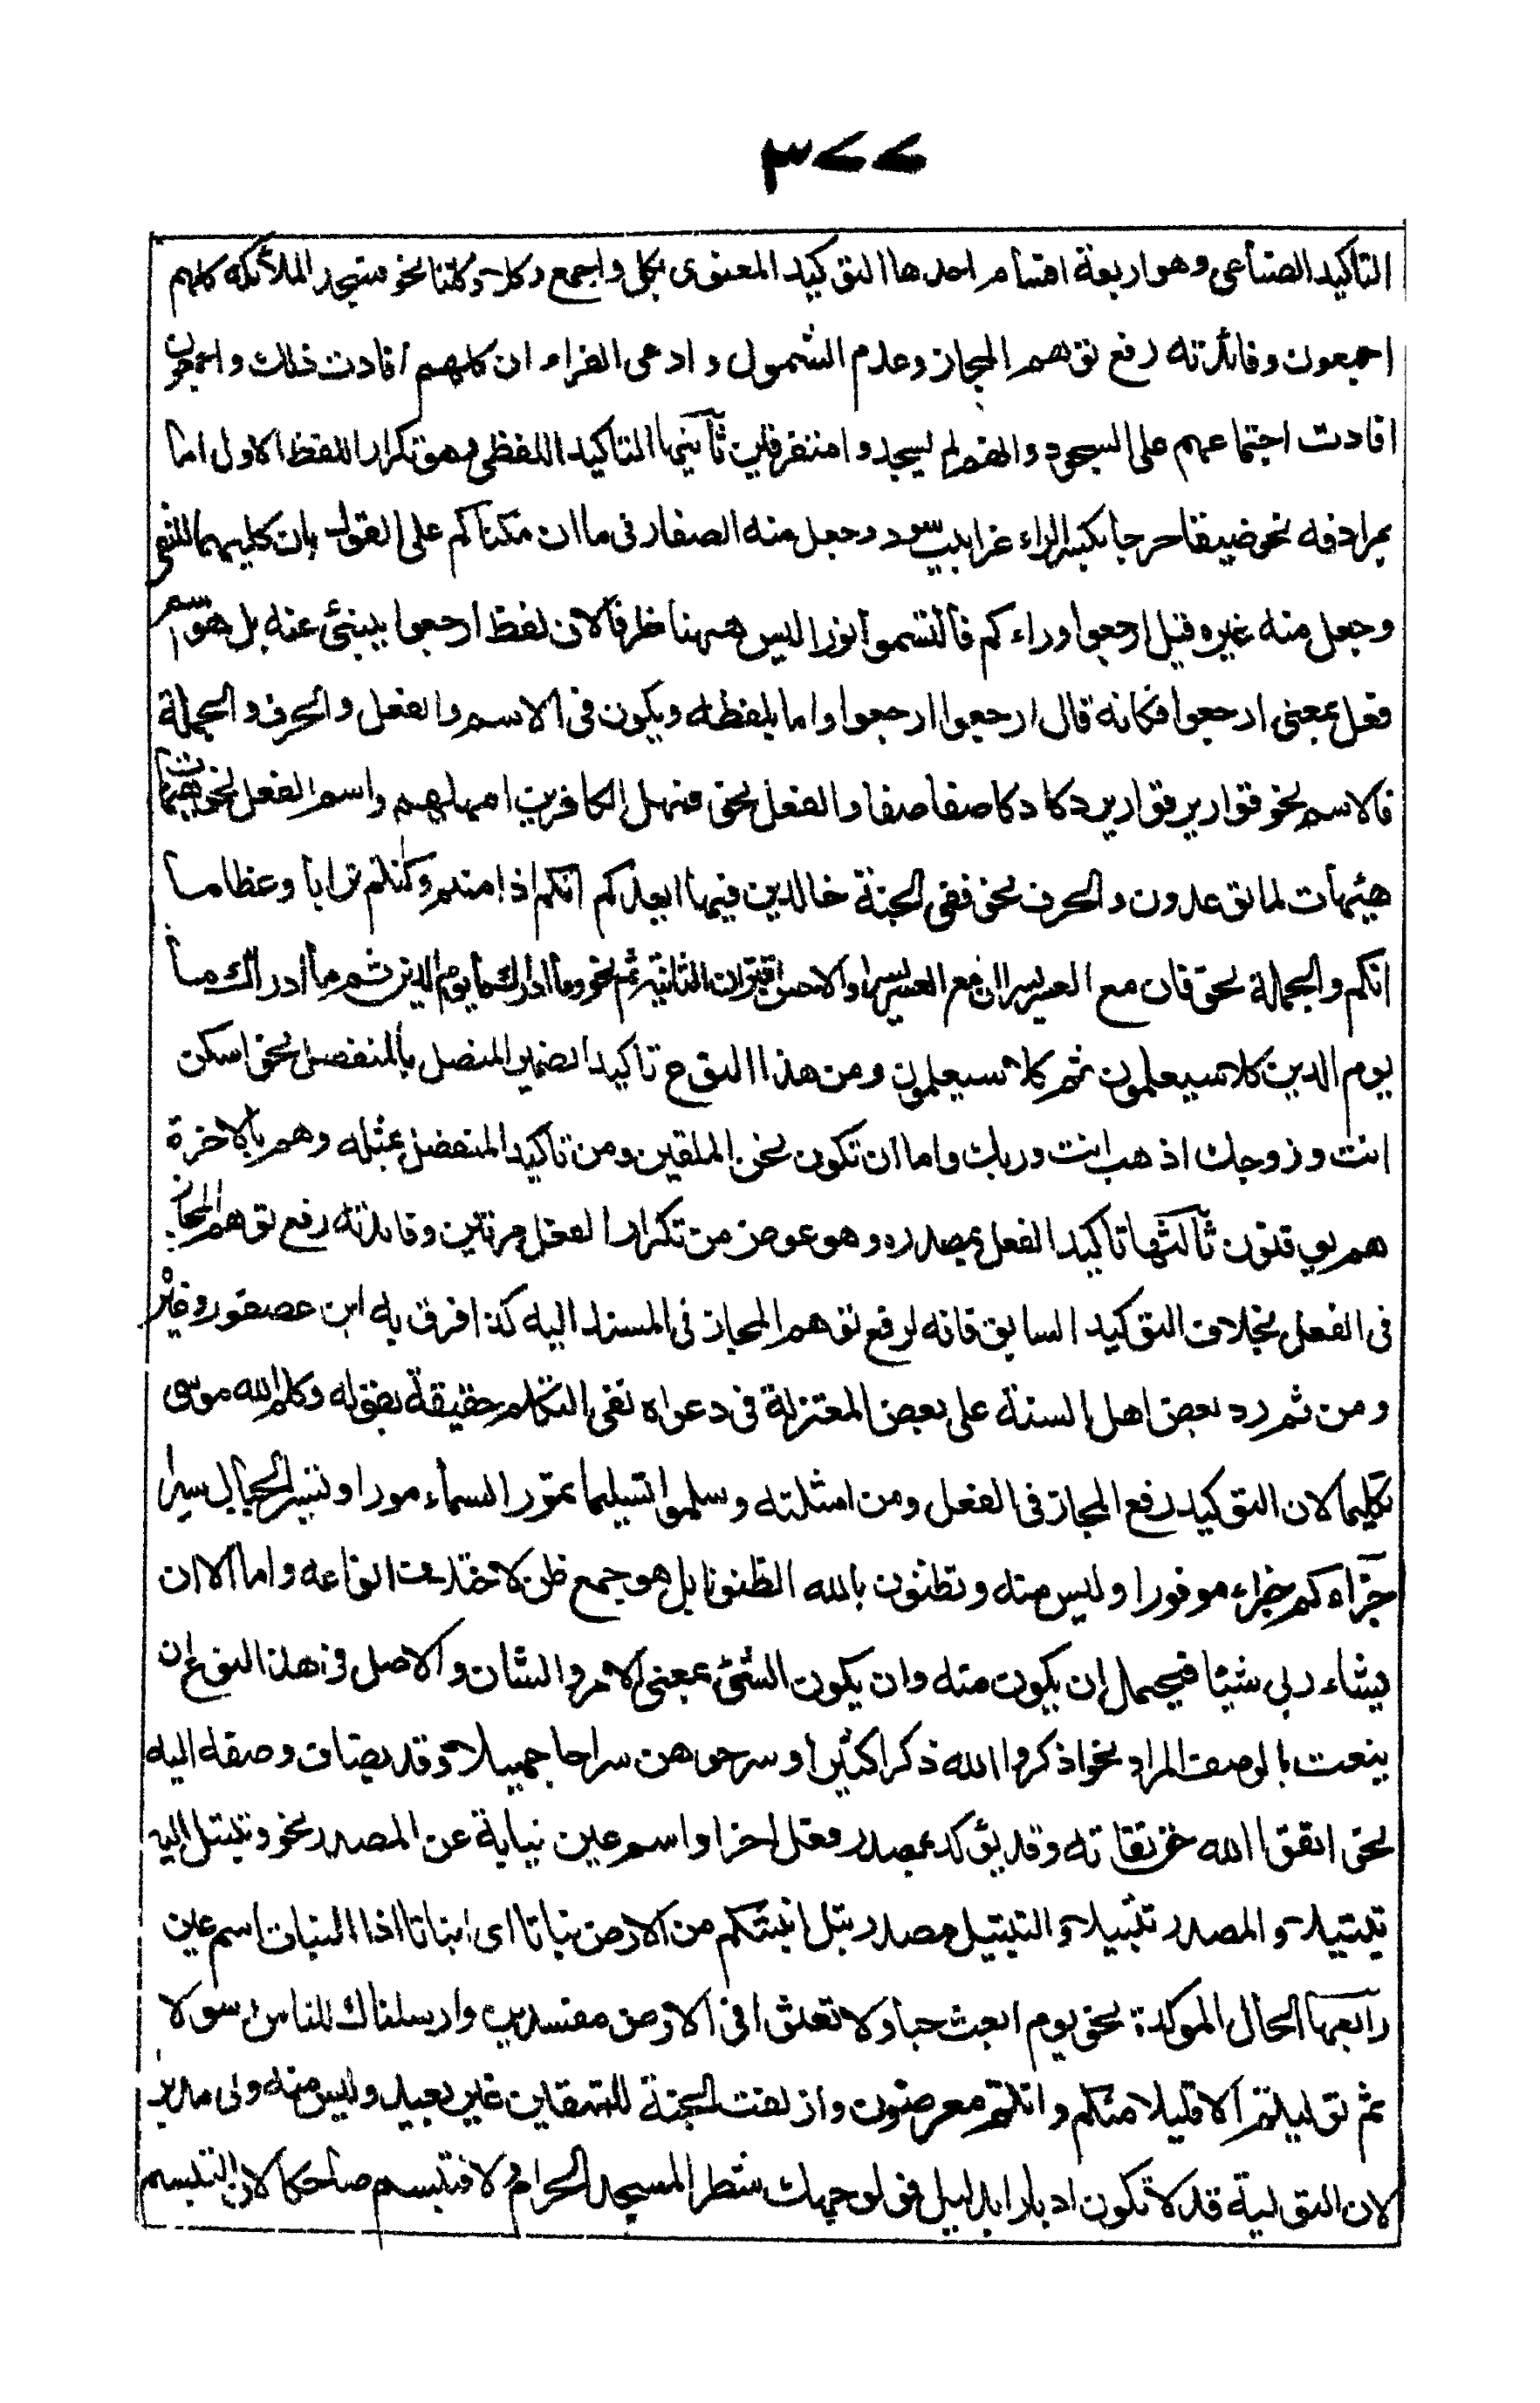 ٣٧٧
التاكيد الصناعى وهو اربعة اقسام احدها التوكيد المعنوى بكل واجمع وكلا وكلتا نحو فسجد الملائكة كلهم
اجمعون وفائدته رفع توهم المجاز وعدم الشمول وادعى الفراء ان كلهم افادت ذلك واجمعون
افادت اجتماعهم على السجود وانهم لم يسجدوا متفرقين ثانيها التاكيد اللفظى وهو تكرار اللفظ الاول اما
بمرادفه نحو ضيقا حرجا بكسر الراء غرابيب سود وجعل منه الصفار فى ما ان مكناكم على القول بان كليهما للنفى
وجعل منه غيره قيل ارجعوا وراءكم فالتمسوا نورا ليس ههنا ظرفا لان لفظ ارجعوا ينبئ عنه بل هو اسم
فعل بمعنى ارجعوا فكانه قال ارجعوا ارجعوا واما بلفظه ويكون فى الاسم والفعل والحرف والجملة
فالاسم نحو قوارير قوارير دكا دكا صفا صفا والفعل نحو فمهل الكافرين امهلهم واسم الفعل نحو هيهات
هيهات لما توعدون والحرف نحو ففى الجنة خالدين فيها ايعدكم انكم اذا متم وكنتم ترابا وعظاما
انكم والجملة نحو فان مع العسر يسرا ان مع العسر يسرا والاحسن اقتران الثانية بثم نحو وما ادراك ما يوم الدين ثم ما ادراك ما
يوم الدين كلا سيعلمون ثم كلا سيعلمون ومن هذا النوع تاكيد الضمير المتصل بالمنفصل نحو اسكن
انت وزوجك اذهب انت وربك واما ان نكون نحن الملقين ومن تاكيد المنفصل بمثله وهم بالاخرة
هم يوقنون ثالثها تاكيد الفعل بمصدره وهو عوض من تكرار الفعل مرتين وفائدته رفع توهم المجاز
فى الفعل بخلاف التوكيد السابق فانه لرفع توهم المجاز فى المسند اليه كذا فرق به ابن عصفور وغيره
ومن ثم رد بعض اهل السنة على بعض المعتزلة فى دعواه نفى التكلم حقيقة بقوله وكلم الله موسى
تكليما لان التوكيد رفع المجاز فى الفعل ومن امثلته وسلموا تسليما تمور السماء مورا وتسير الجبال سيرا
جزاءكم جزاء موفورا وليس منه وتظنون بالله الظنونا بل هو جمع ظن لاختلاف انواعه واما الا ان
يشاء ربى شيئا فيحتمل ان يكون منه وان يكون الشئ بمعنى الامر والشان والاصل فى هذا النوع ان
ينعت بالوصف المراد نحو اذكروا الله ذكرا كثيرا وسرحوهن سراحا جميلا وقد يضاف وصفه اليه
نحو اتقوا الله حق تقاته وقد يؤكد بمصدر فعل اخر او اسم عين نيابة عن المصدر نحو وتبتل اليه
تبتيلا والمصدر تبتلا والتبتيل مصدر بتل انبتكم من الارض نباتا اى انباتا اذ النبات اسم عين
رابعها الحال المؤكدة نحو يوم ابعث حيا ولا تعثوا فى الارض مفسدين وارسلناك للناس رسولا
ثم توليتم الا قليلا منكم وانتم معرضون وازلفت الجنة للمتقين غير بعيد وليس منه ولى مدبرا
لان التولية قد لا تكون ادبارا بدليل فول وجهك شطر المسجد الحرام ولا فتبسم ضاحكا لان التبسم